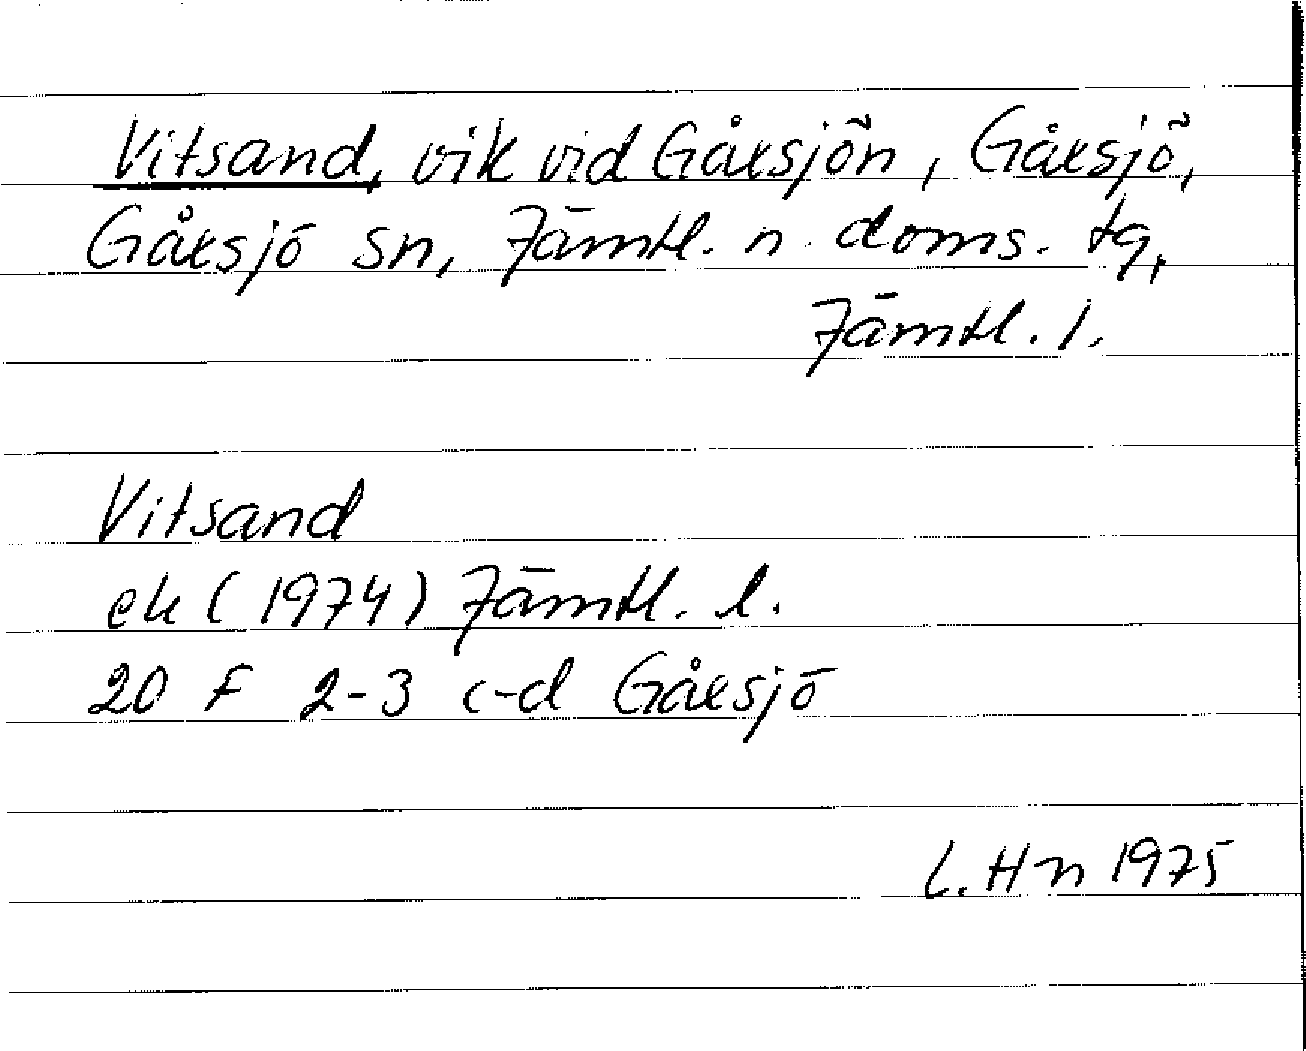 Vitsand, vik vid Gåxsjön, Gåxsjö,
Gåxsjö sn, Jämtl. n. doms. tg,
Jämtl. l.
Vitsand
ek (1974) Jämtl. l.
20 F 2-3 c-d Gåxsjö
L. Hn 1975